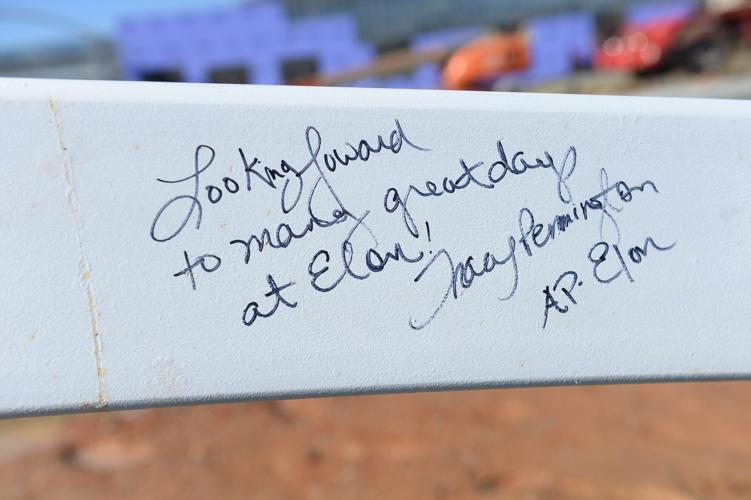 Looking foward
to many great days
at Elon! Tracy Pennington
AP. Elon